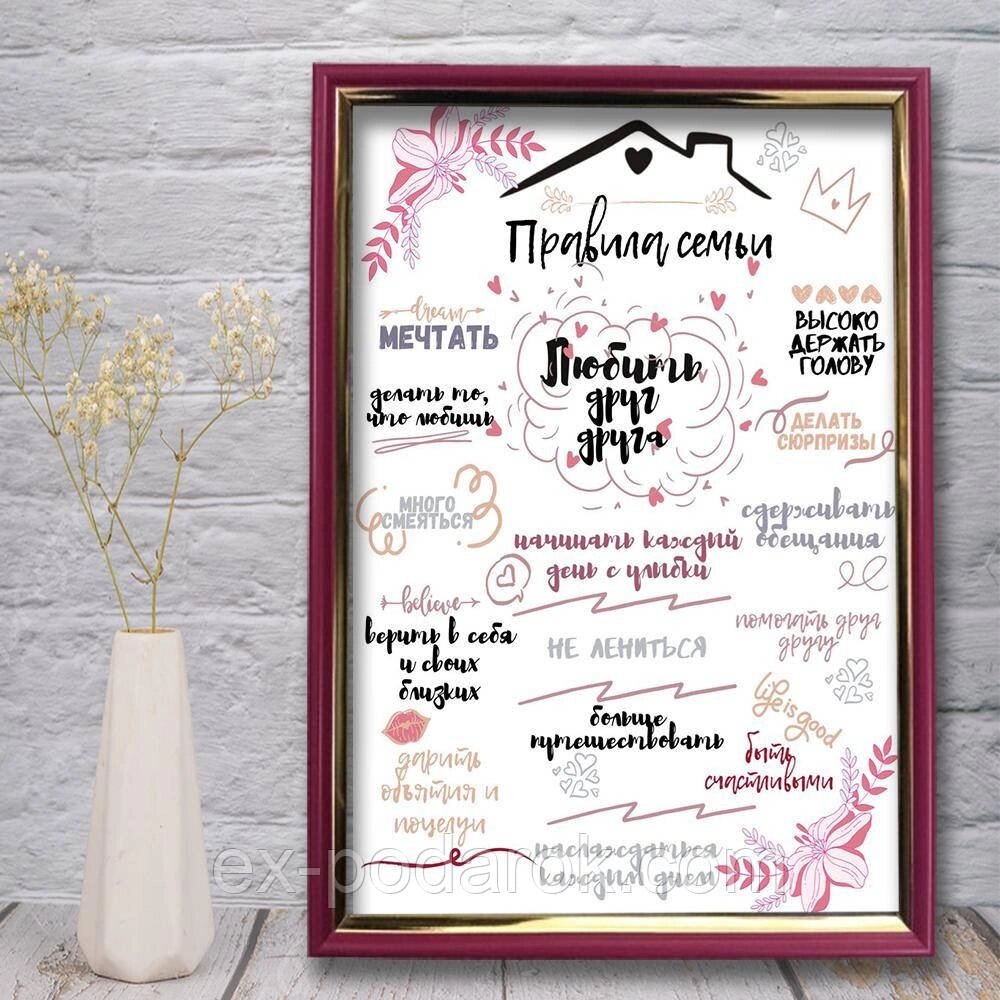 Правила семьи
dream
МЕЧТАТЬ
делать то,
что любишь
Любить
друг
друга
ВЫСОКО
ДЕРЖАТЬ
ГОЛОВУ
ДЕЛАТЬ
СЮРПРИЗЫ
МНОГО
СМЕЯТЬСЯ
начинать каждый
день с улыбки
сдерживать
обещания
believe
верить в себя
и своих
близких
НЕ ЛЕНИТЬСЯ
помогать друг
другу
life is good
больше
путешествовать
быть
счастливыми
дарить
объятия и
поцелуи
наслаждаться
каждым днем
ex-podarok.com